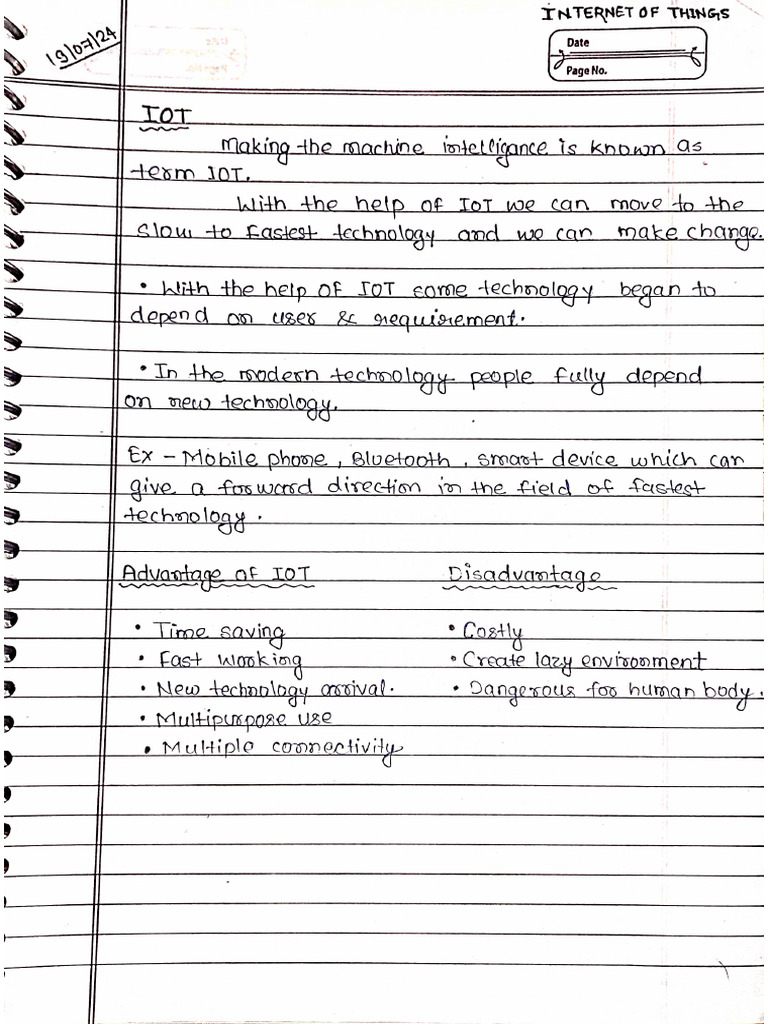 INTERNET OF THINGS
19/07/24
Date
Page No.
IOT
Making the machine intelligance is known as
term IOT.
With the help of IOT we can move to the
slow to fastest technology and we can make change.
• With the help of IOT some technology began to
depend on user & requirement.
• In the modern technology people fully depend
on new technology.
Ex - Mobile phone, Bluetooth, smart device which can
give a forward direction in the field of fastest
technology.
Advantage of IOT Disadvantage
• Time saving • Costly
• Fast working • Create lazy environment
• New technology arrival. • Dangerous for human body.
• Multipurpose use
• Multiple connectivity